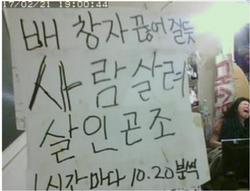 17/02/21 19:00:44
배 창자 끊어 질듯
사람살려
살인곤조
1시간마다 10.20분씩